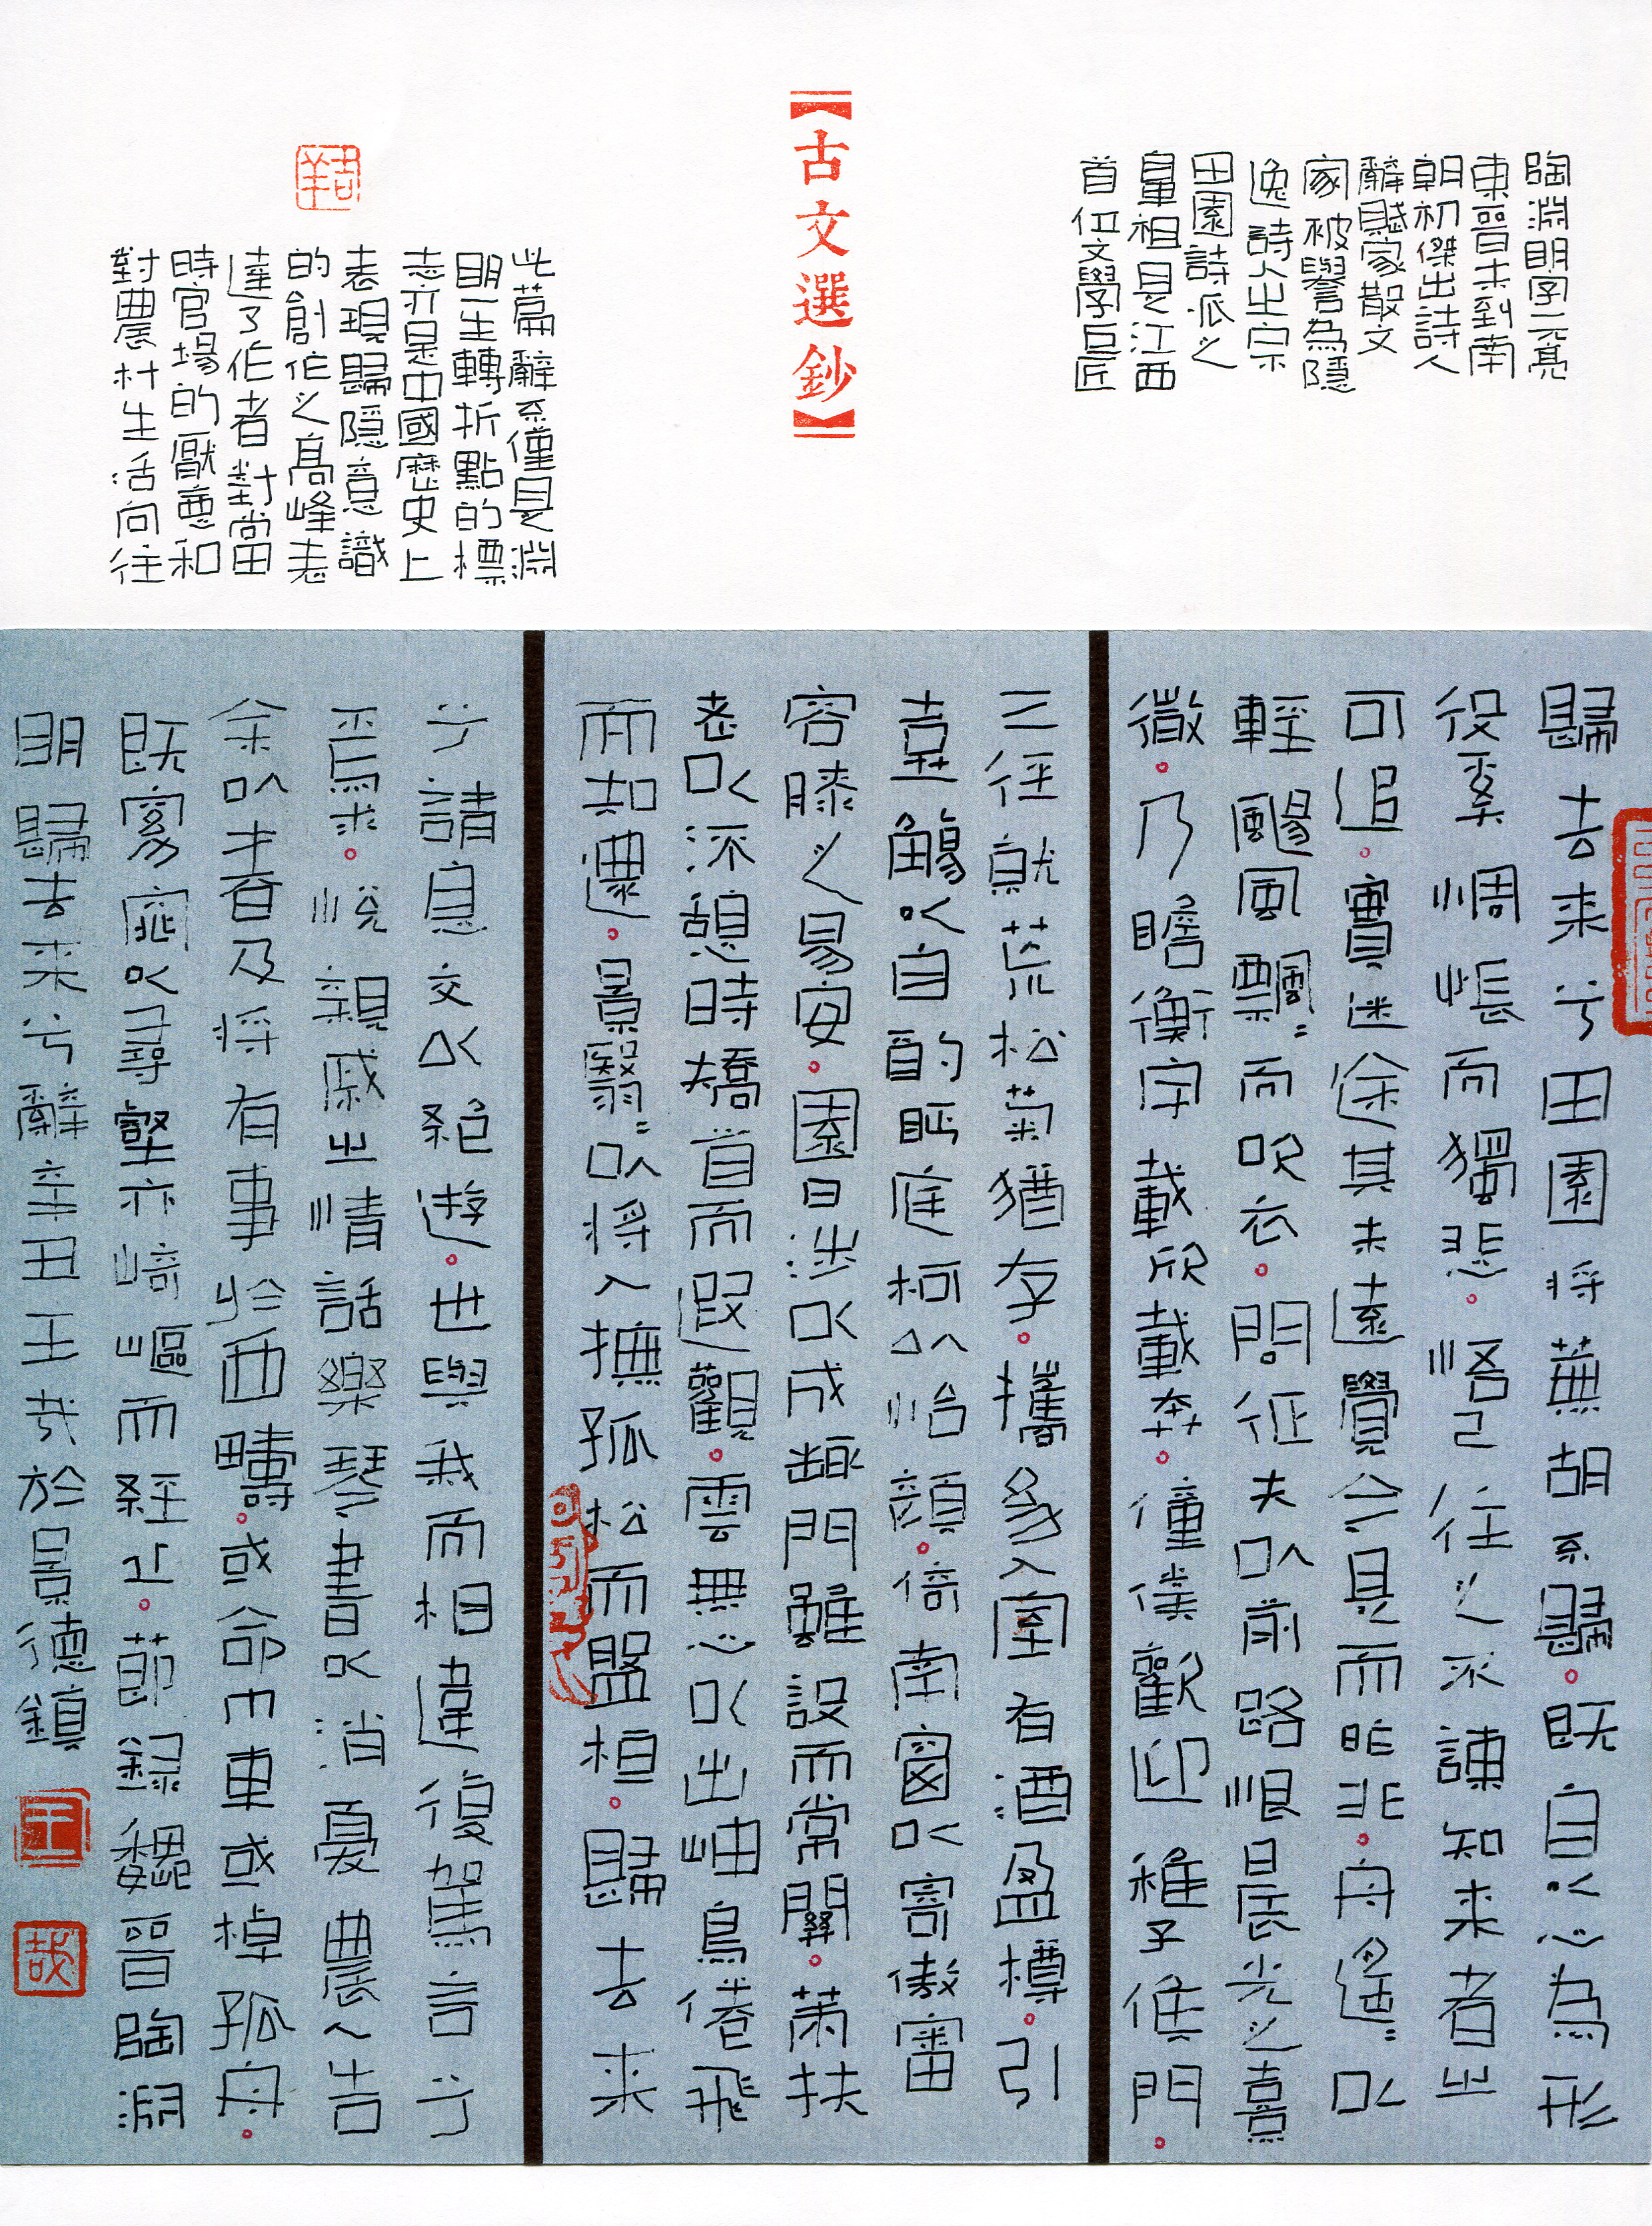 陶淵明字元亮
東晉末到南
朝初傑出詩人
辭賦家散文
家被譽為隱
逸詩人之宗
田園詩派之
鼻祖是江西
首位文學巨匠
【古文選鈔】
此篇辭系僅是淵
明一生轉折點的標
志亦是中國歷史上
表現歸隱意識
的創作之高峰表
達了作者對當田
時官場的厭惡和
對農村生活向往
歸去来兮田園将蕪胡系歸。既自以心為形
役奚惆悵而獨悲。悟已往之不諫知来者之
可追。實迷途其未遠覺今是而昨非。舟遙:以
輕颺風飄:而吹衣。問征夫以前路恨晨光之熹
微。乃瞻衡宇載欣載奔。僮僕歡迎稚子候門。
三径就荒松菊猶存。攜幼入室有酒盈樽。引
壺觴以自酌眄庭柯以怡顔。倚南窗以寄傲審
容膝之易安。園日涉以成趣門雖設而常關。策扶
老以流憩時矯首而遐觀。雲無心以出岫鳥倦飛
而知還。景翳:以将入撫孤松而盤桓。歸去来
兮請息交以絕遊。世與我而相違復駕言兮
焉求。悦親戚之情話樂琴書以消憂農人告
余以春及将有事於西疇。或命巾車或棹孤舟。
既窈窕以尋壑亦崎嶇而経丘。節録魏晉陶淵
明歸去来兮辭辛丑王哉於景德鎮
王
哉